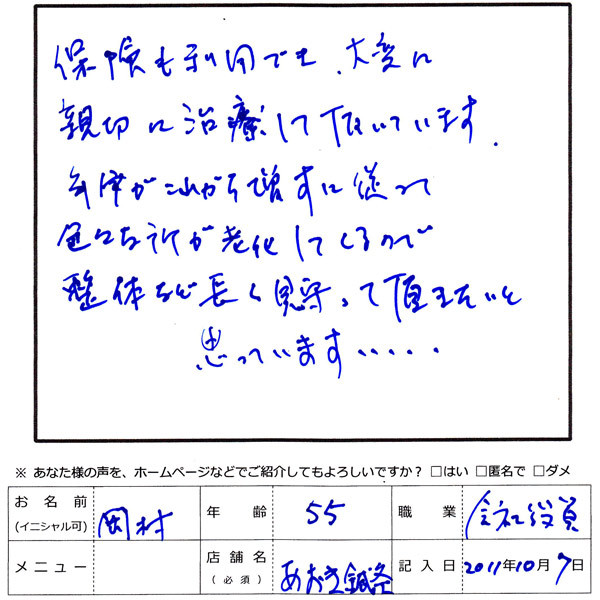 保険も利用でき、大変に
親切に治療して頂いています。
年津がこれから増すに従って
色々な所が老化してくるので
整体など長く見守って頂きたいと
思っています・・・・・
※ あなた様の声を、ホームページなどでご紹介してもよろしいですか? □はい □匿名で □ダメ
お名前 (イニシャル可) 岡村 年齢 55 職業 会社役員
メニュー 店舗名 (必須) あおき鍼灸 記入日 2011年10月7日